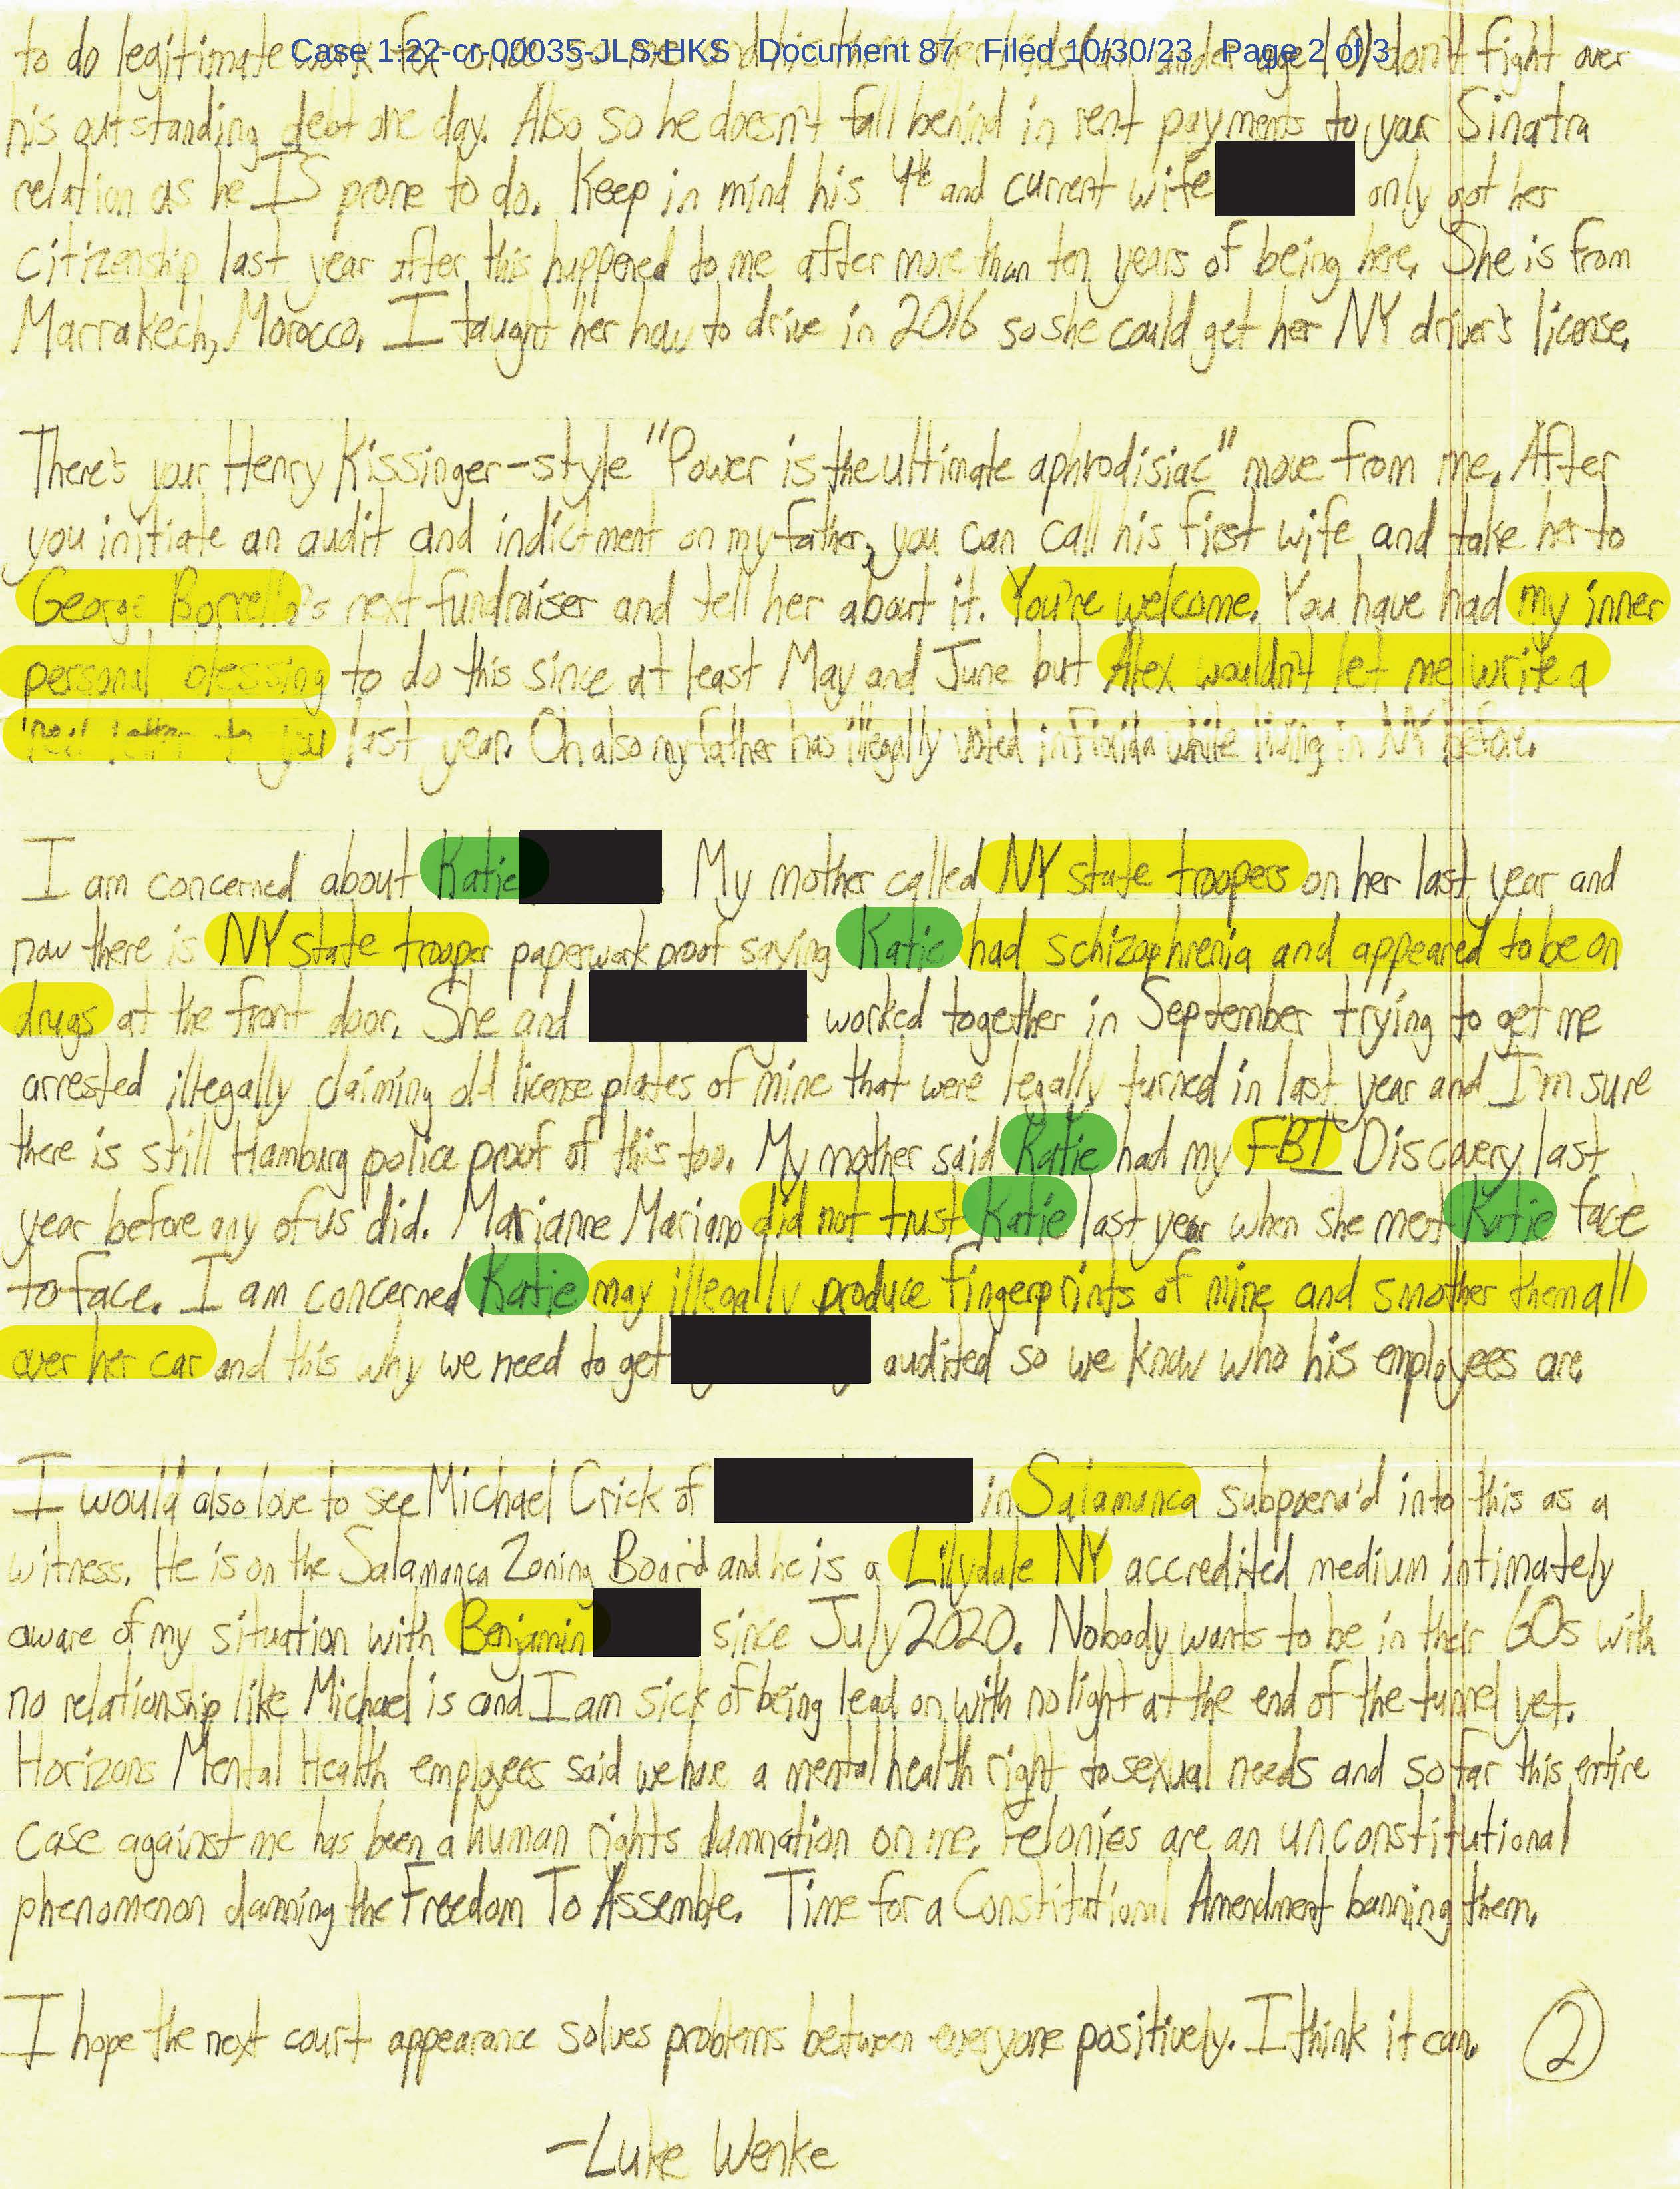 Case 1:22-cr-00035-JLS-HKS Document 87 Filed 10/30/23 Page 2 of 3
to do legitimate work for once so me and his other kids don't fight over
his outstanding debt one day. Also so he doesn't fall behind in rent payments to your Sinatra
relation as he IS prone to do. Keep in mind his 4th and current wife only got her
citizenship last year after this happened to me after more than ten years of being here. She is from
Marrakech, Morocco. I taught her how to drive in 2016 so she could get her NY driver's license.
There's your Henry Kissinger-style "Power is the ultimate aphrodisiac" move from me. After
you initiate an audit and indictment on my father, you can call his first wife and take her to
George Borrello's next fundraiser and tell her about it. You're welcome. You have had my inner
personal blessing to do this since at least May and June but Alex wouldn't let me write a
letter to you last year. Oh also my father has illegally voted in Florida while living in NY before.
I am concerned about Katie . My mother called NY state troopers on her last year and
now there is NY state trooper paperwork proof saying Katie had schizophrenia and appeared to be on
drugs at the front door. She and worked together in September trying to get me
arrested illegally claiming old license plates of mine that were legally turned in last year and I'm sure
there is still Hamburg police proof of this too. My mother said Katie had my FBI Discovery last
year before any of us did. Marianne Mariano did not trust Katie last year when she met Katie face
to face. I am concerned Katie may illegally produce fingerprints of mine and smother them all
over her car and this why we need to get audited so we know who his employees are.
I would also love to see Michael Crick of in Salamanca subpoena'd into this as a
witness. He is on the Salamanca Zoning Board and he is a Lilydale NY accredited medium intimately
aware of my situation with Benjamin since July 2020. Nobody wants to be in their 60s with
no relationship like Michael is and I am sick of being lead on with no light at the end of the tunnel yet.
Horizons Mental Health employees said we have a mental health right to sexual needs and so far this entire
case against me has been a human rights damnation on me. Felonies are an unconstitutional
phenomenon damning the Freedom To Assemble. Time for a Constitutional Amendment banning them.
I hope the next court appearance solves problems between everyone positively. I think it can. 2
-Luke Wenke